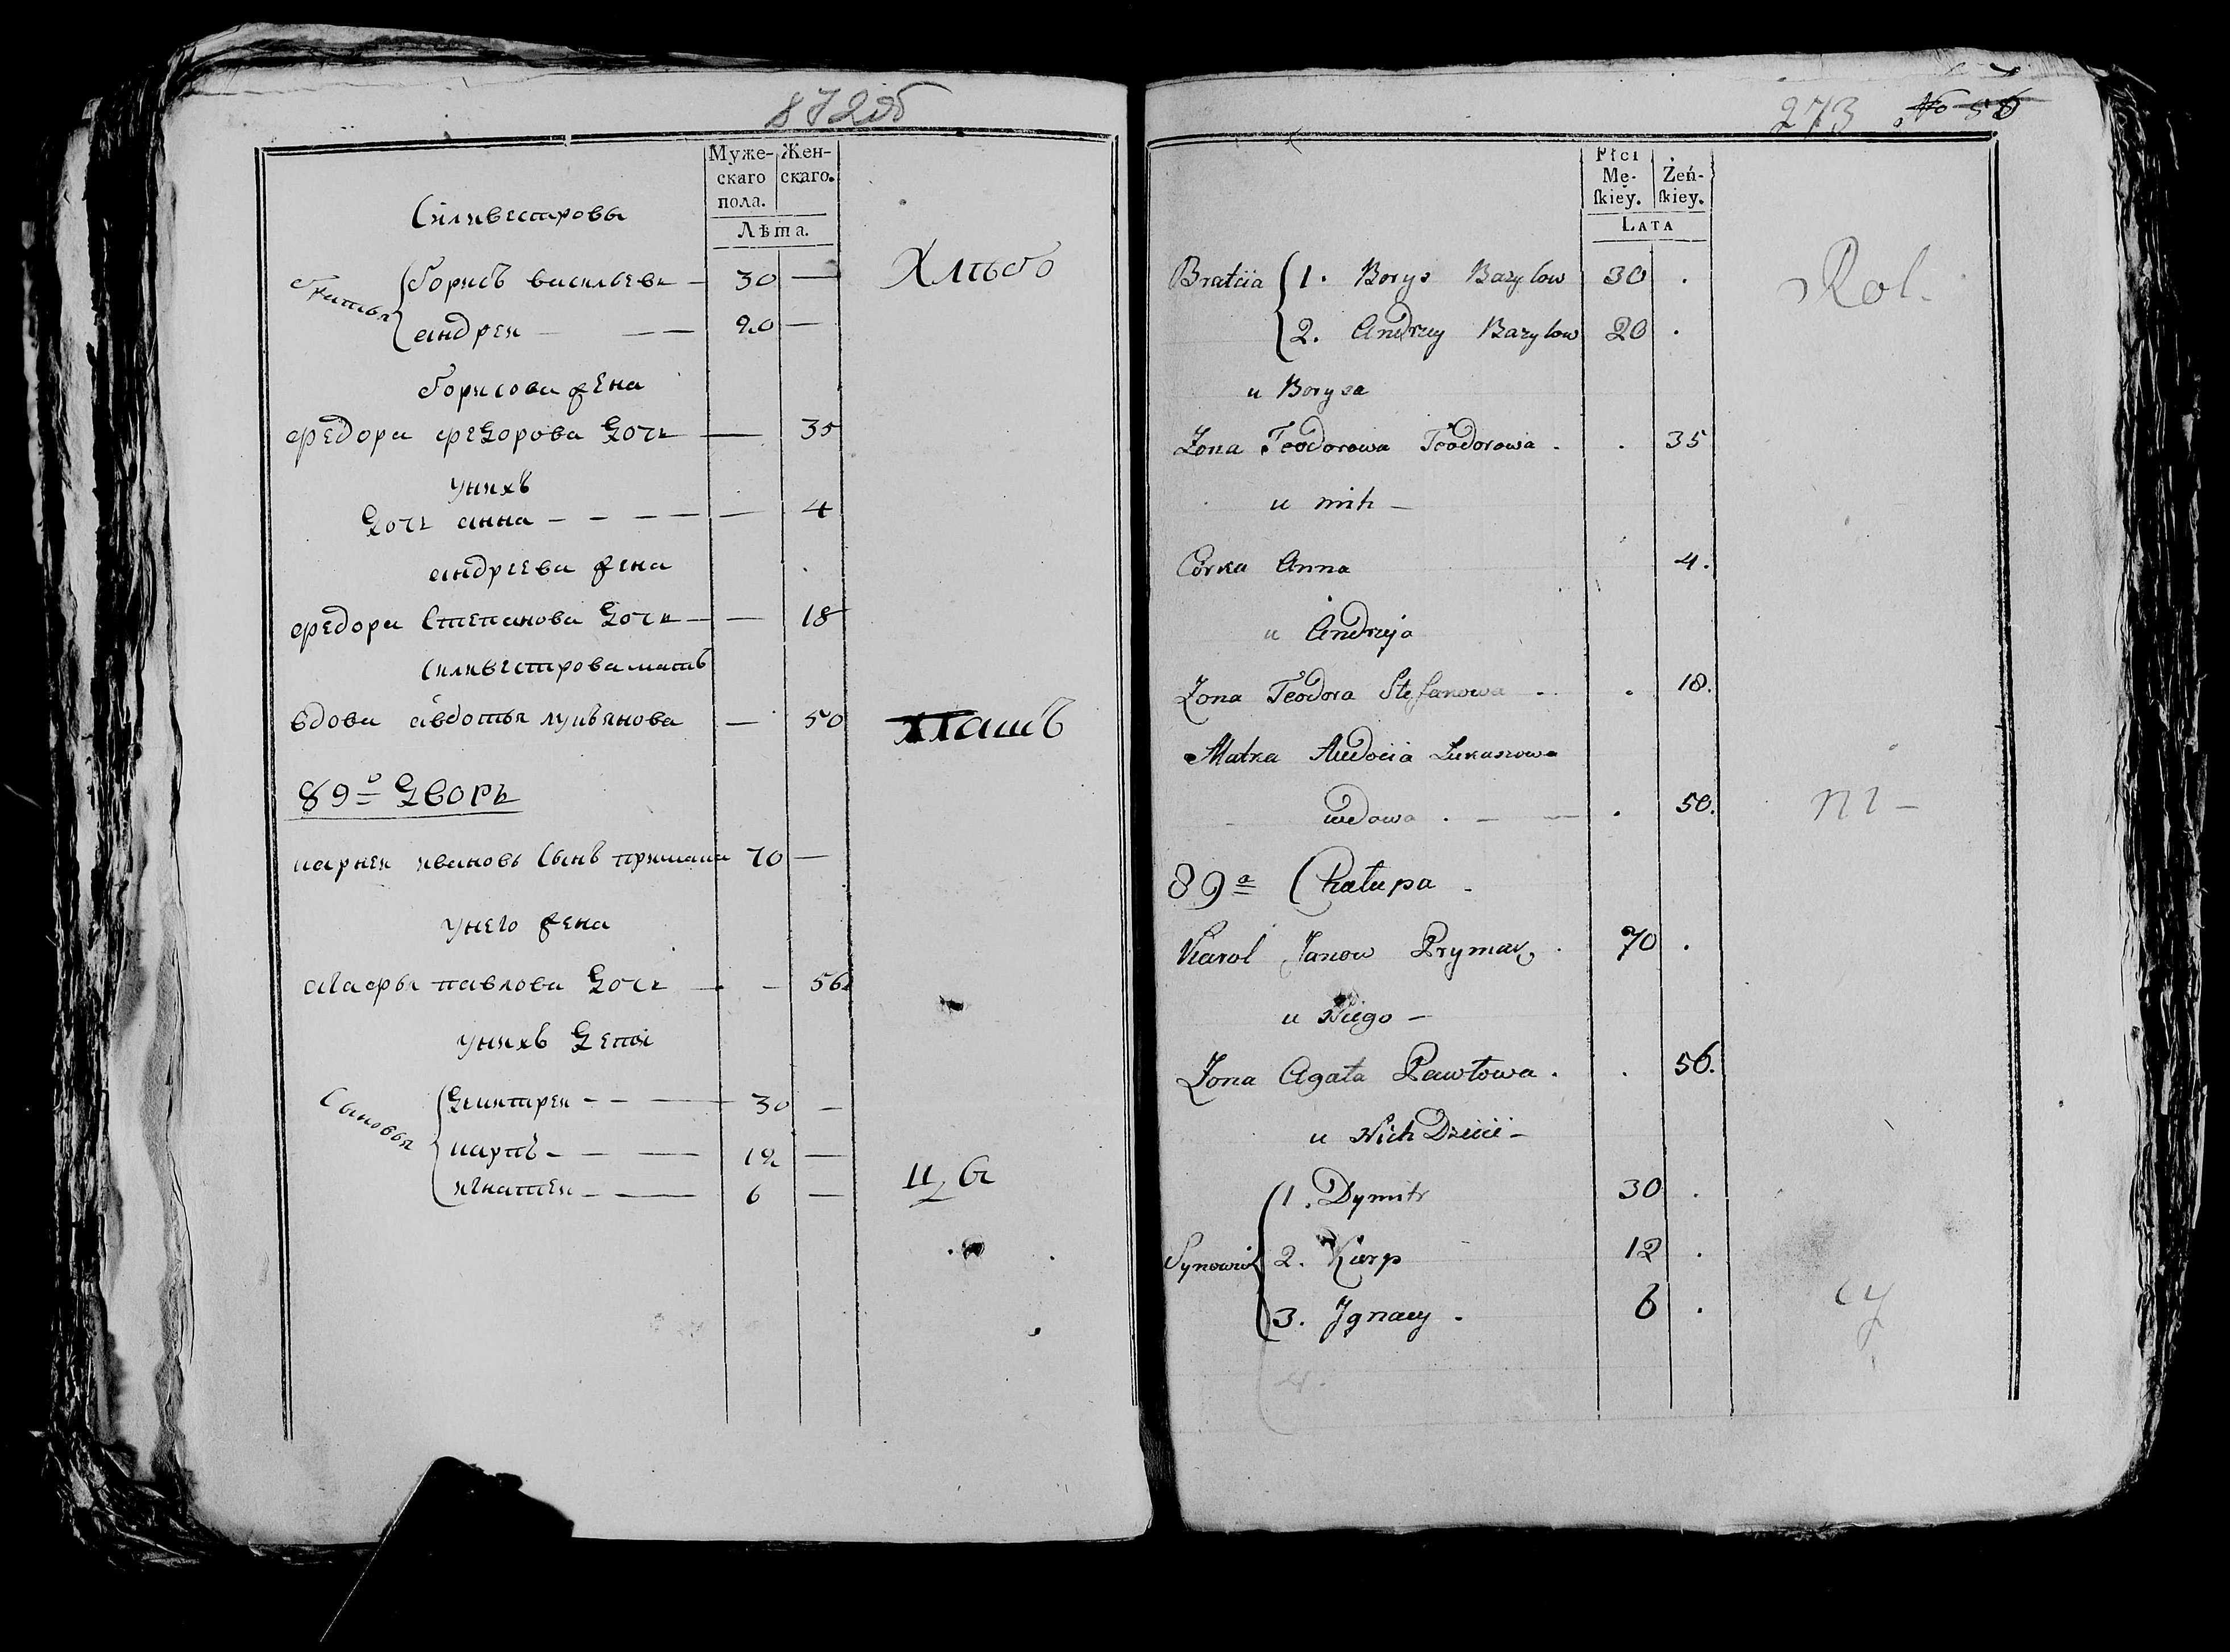 872об
Муже-
скаго
пола.
Жен-
скаго.
Лѣта.
Силивестровы
братья
борисъ васильевъ — 30 —
андреи — — — 20 —
Хлѣбо
борисова жена
федора федорова дочь — 35
унихъ
дочь анна — — — — — 4
андреева жена
федора Степанова дочь — — 18
Силивестрова мать
вдова авдотья лукьянова — 50
пашъ
89й дворъ
карпеи ивановъ Сынъ примакъ 70 —
унего жена
агафья павлова дочь — — 56
унихъ дети
Сыновья
дмитреи — — — 30 —
карпъ — — — 12 —
игнатеи — — 6 —
цы
273 No 56
Płci
Mę-
ſkiey.
Żeń-
ſkiey.
LATA
Bratcia
1. Borys Bazylow 30 .
2. Andrzy Bazylow 20 .
Rol.
u Borysa
Zona Teodorowa Teodorowa . . 35
u nich –
Córka Anna 4.
u Andrzyja
Zona Teodora Stefanowa . . 18.
Matka Audocia Łukaszowa
wdowa . — — . 50.
ni –
89a Chałupa
Karol Janow Prymak . 70 .
u Niego –
Zona Agata Pawłowa . . 56.
u Nich Dzieci –
Synowie
1. Dymitr 30 .
2. Karp 12 .
3. Jgnacy . 6 .
cy